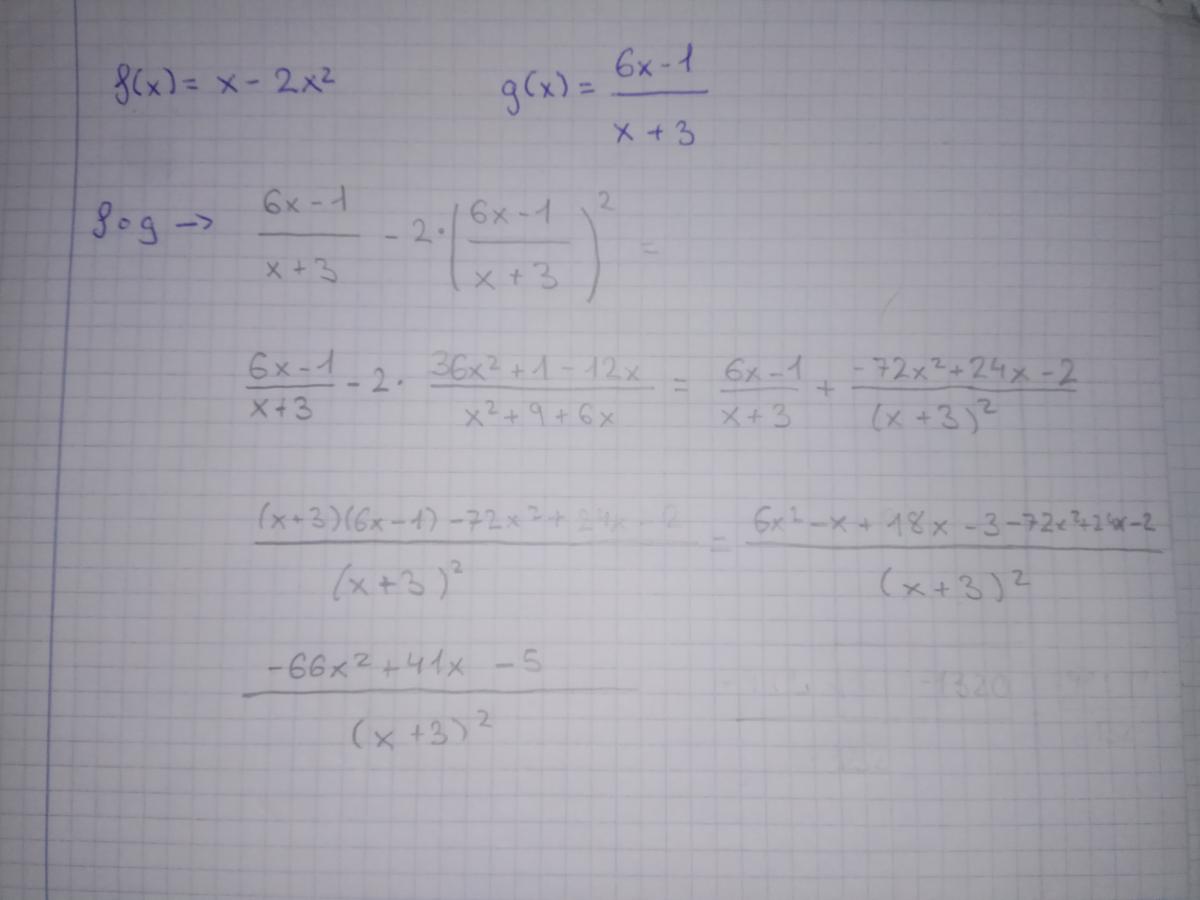 f(x) = x - 2x² g(x) = (6x-1)/(x+3)
f∘g → (6x-1)/(x+3) - 2·((6x-1)/(x+3))² =
(6x-1)/(x+3) - 2· (36x²+1-12x)/(x²+9+6x) = (6x-1)/(x+3) + (-72x²+24x-2)/(x+3)²
((x+3)(6x-1)-72x²+24x-2)/(x+3)² = (6x²-x+18x-3-72x²+24x-2)/(x+3)²
(-66x²+41x-5)/(x+3)²